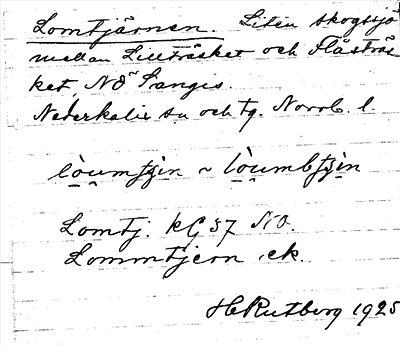 Lomtjärnen. Liten skogssjö
mellan Lillträsket och Flåsträs
ket, NÖ Sangis.
Nederkalix sn och tg. Norrb. l.
lòumtjin ~ lòumbtjin
Lomtj. kG 57 NO.
Lommtjern ek.
HRutberg 1925